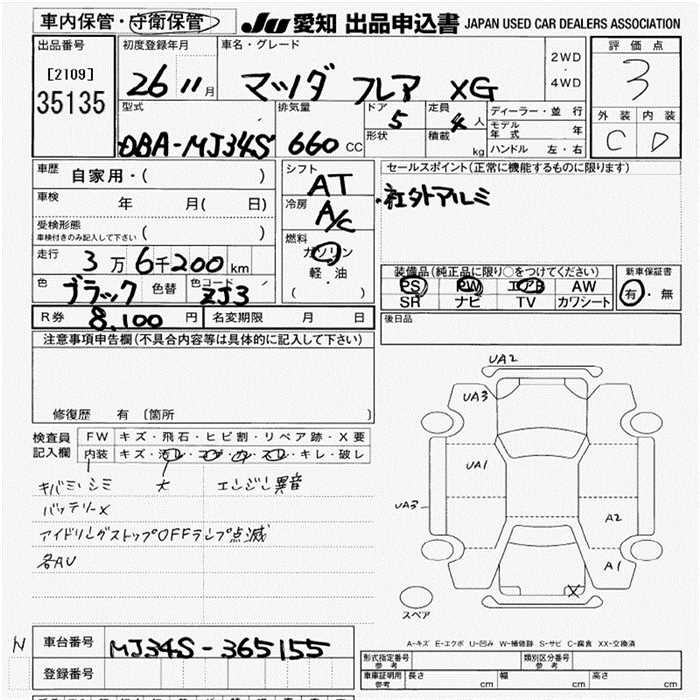 車内保管・守衛保管 JU 愛知 出品申込書 JAPAN USED CAR DEALERS ASSOCIATION
出品番号 初度登録年月 車名・グレード 評価点
[2109] 26 11月 マツダ フレア XG 2WD・4WD 3
35135
型式 排気量 ドア 定員 ディーラー・並行 外装 内装
DBA-MJ34S 660CC 5 4人 モデル年式 年 C D
形状 積載 kg ハンドル 左・右
車歴 自家用・( ) シフト AT セールスポイント(正常に機能するものに限ります)
車検 年 月( 日) 冷房 A/C ・社外アルミ
受検形態
車検付きのみ記入して下さい ( )
走行 3万6千200km 燃料 ガソリン 軽・油 ( )
装備品(純正品に限り○をつけてください) 新車保証書
色 ブラック 色替 色コード ZJ3 PS PW エアB AW 有・無
SR ナビ TV カワシート
R券 8,100円 名変期限 月 日 後日品
注意事項申告欄(不具合内容等は具体的に記入して下さい)
修復歴 有 〔箇所 〕
検査員記入欄 FW キズ・飛石・ヒビ割・リペア跡・X要
内装 キズ・汚レ・コゲ・カ・スレ・キレ・破レ
キバミ・シミ 大 エンジン異音
バッテリーX
アイドリングストップOFFランプ点滅
各AU
UA2
UA3
UA1
UA3
A2
A1
X
スペア
A-キズ E-エクボ U-凹み W-補修跡 S-サビ C-腐食 XX-交換済
N 車台番号 MJ34S-365155
登録番号
形式指定番号 参考 類別区分番号 参考
車庫証明用 参考 長さ cm 幅 cm 高さ cm